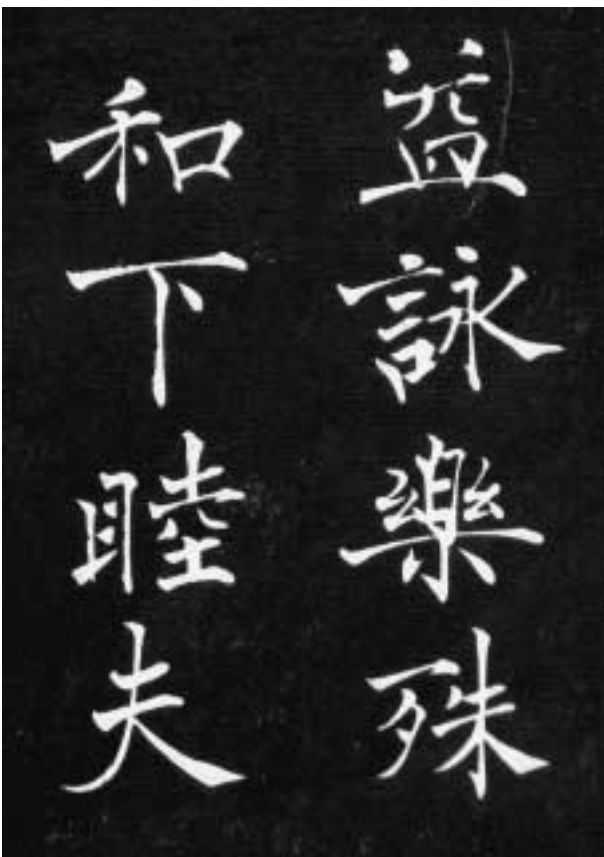 益詠樂殊
和下睦夫